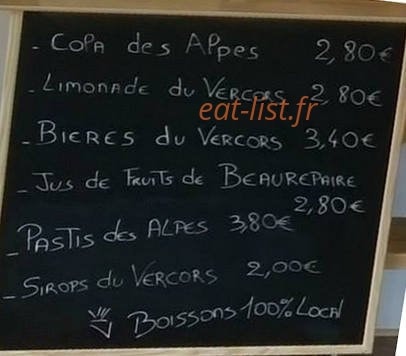 - COPA des Alpes 2,80€
- LIMONADE du VERCORS 2,80€
eat-list.fr
- BIERES du VERCORS 3,40€
- JUS de FRUITS de BEAUREPAIRE
2,80€
- PASTIS des ALPES 3,80€
- SIROPS du VERCORS 2,00€
BOISSONS 100% LOCAl